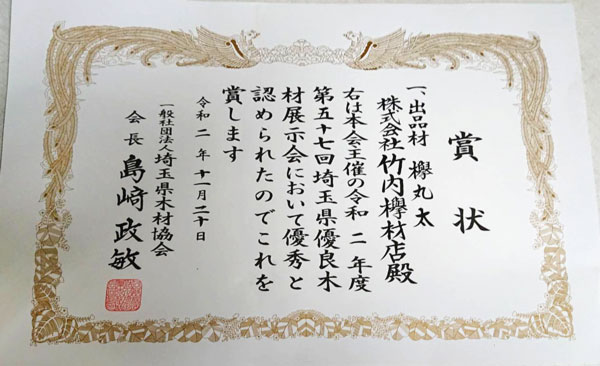 賞状
一、出品材 欅丸太
株式会社竹内欅材店殿
右は本会主催の令和二年度
第五十七回埼玉県優良木
材展示会において優秀と
認められたのでこれを
賞します
令和二年十一月二十日
一般社団法人埼玉県木材協会
会長 島﨑政敏